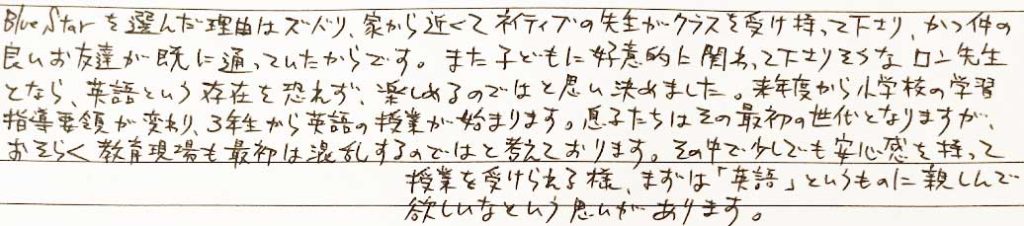 Blue Star を選んだ理由はズバリ、家から近くてネイティブの先生がクラスを受け持って下さり、かつ仲の
良いお友達が既に通っていたからです。また子どもに好意的に関わって下さりそうなロン先生
となら、英語という存在を恐れず、楽しめるのではと思い決めました。来年度から小学校の学習
指導要領が変わり、3年生から英語の授業が始まります。息子たちはその最初の世代となりますが、
おそらく教育現場も最初は混乱するのではと考えております。その中で少しでも安心感を持って
授業を受けられる様、まずは「英語」というものに親しんで
欲しいなという思いがあります。